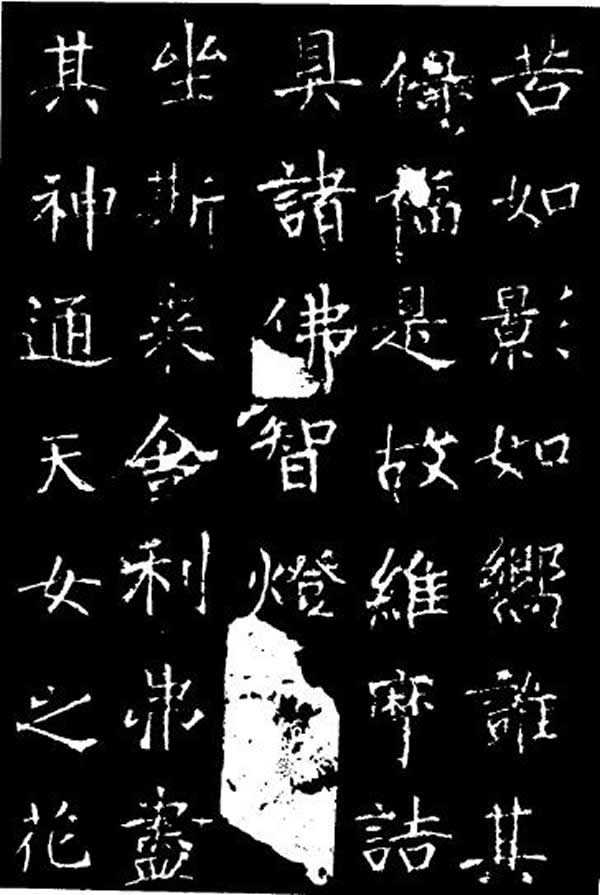 苦如影如嚮誰其
保福是故維摩詰
具諸佛智燈
坐斯來舍利弗盡
其神通天女之花